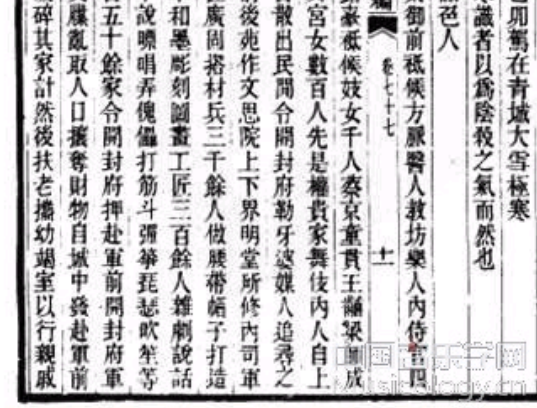 卯駕在青城大雪極寒
識者以爲陰殺之氣而然也
色人
御前祗候方脈醫人教坊樂人內侍官四
編
卷七十七
十一
臺祗候妓女千人蔡京童貫王黼梁師成
宮女數百人先是權貴家舞伎內人自上
散出民間令開封府勒牙婆媒人追尋之
後苑作文思院上下界明堂所修內司軍
廣固搭材兵三千餘人做腰帶帽子打造
和墨彫刻圖畫工匠三百餘人雜劇說話
說嘌唱弄傀儡打筋斗彈箏琵琶瑟吹笙等
五十餘家令開封府押赴軍前開封府軍
亂取人口攘奪財物自城中發赴軍前
碎其家計然後扶老攜幼竭室以行親戚
中国音乐学网
musicology.cn